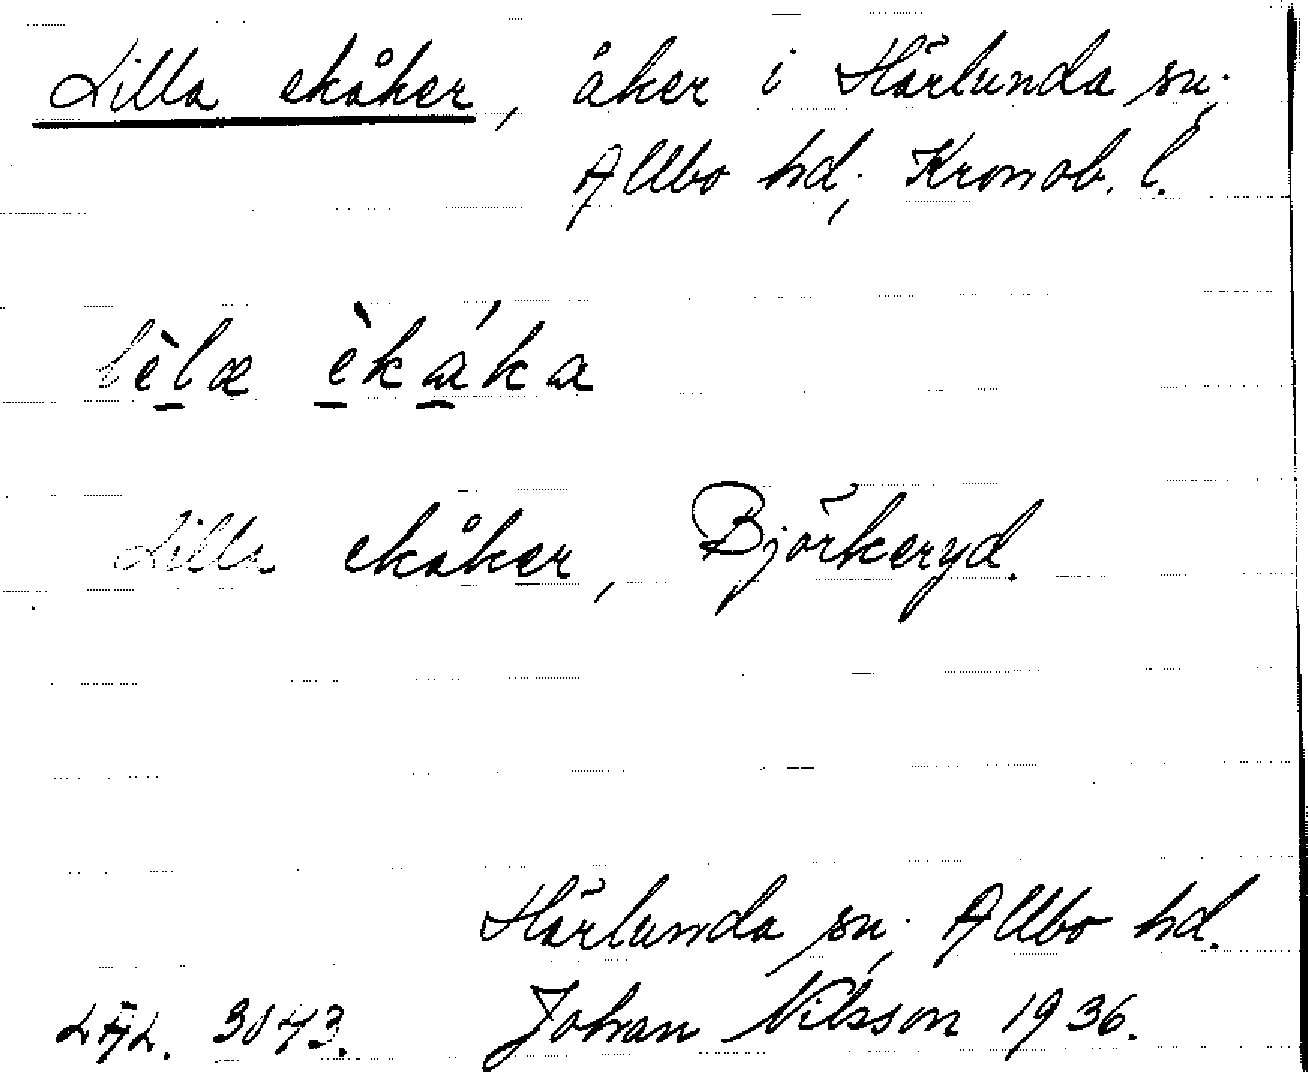 Lilla ekåker, åker i Härlunda sn;
Allbo hd; Kronob. l.
lèlæ èkáka
Lilla ekåker, Björkeryd.
Härlunda sn; Allbo hd.
LAL. 3043. Johan Nilsson 1936.